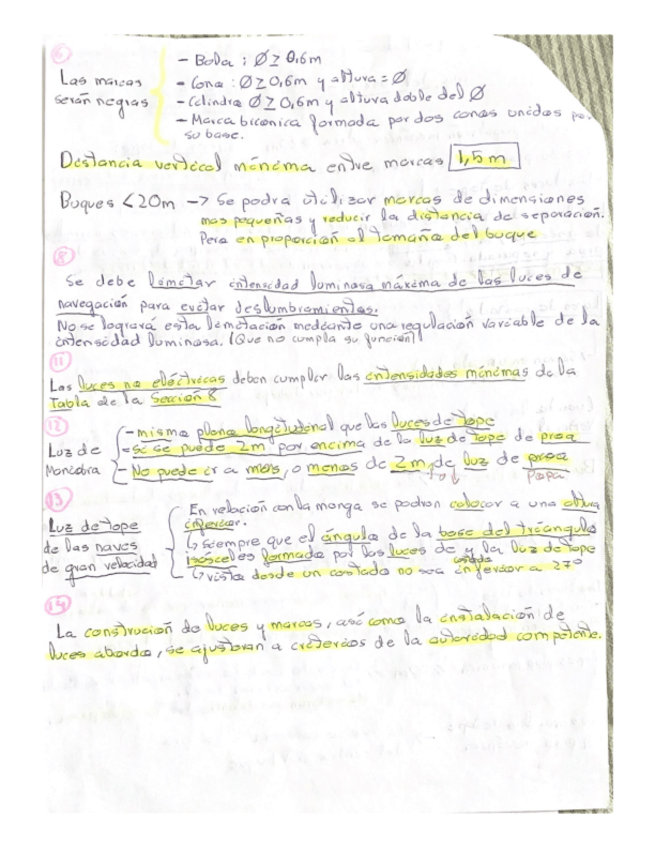 6
- Bola : Ø ≥ 0,6m
Las marcas - Cono : Ø ≥ 0,6m y altura = Ø
serán negras - Cilindro Ø ≥ 0,6m y altura doble del Ø
- Marca biconica formada por dos conos unidos por
su base.
Distancia vertical mínima entre marcas 1,5m
Buques < 20m -> Se podra utilizar marcas de dimensiones
mas pequeñas y reducir la distancia de separación.
Pero en proporción al tamaño del buque
8
Se debe limitar intensidad luminosa máxima de las luces de
navegación para evitar deslumbramientos.
No se logrará esta limitación mediante una regulación variable de la
intensidad luminosa. (Que no cumpla su función)
11
Las luces no eléctricas deben cumplir las intensidades mínimas de la
Tabla de la Sección 8
12
- mismo plano longitudinal que las luces de tope
Luz de - si se puede 2m por encima de la luz de tope de proa
Maniobra - No puede ir a más, o menos de 2m de luz de proa
popa
13
En relación con la manga se podran colocar a una altura
Luz de tope inferior.
de las naves ↳ siempre que el ángulo de la base del triángulo
de gran velocidad isósceles formado por las luces de costado y la luz de tope
↳ vista desde un costado no sea inferior a 27°
14
La construcion de luces y marcas, así como la instalación de
luces abordo, se ajustaran a criterios de la autoridad competente.